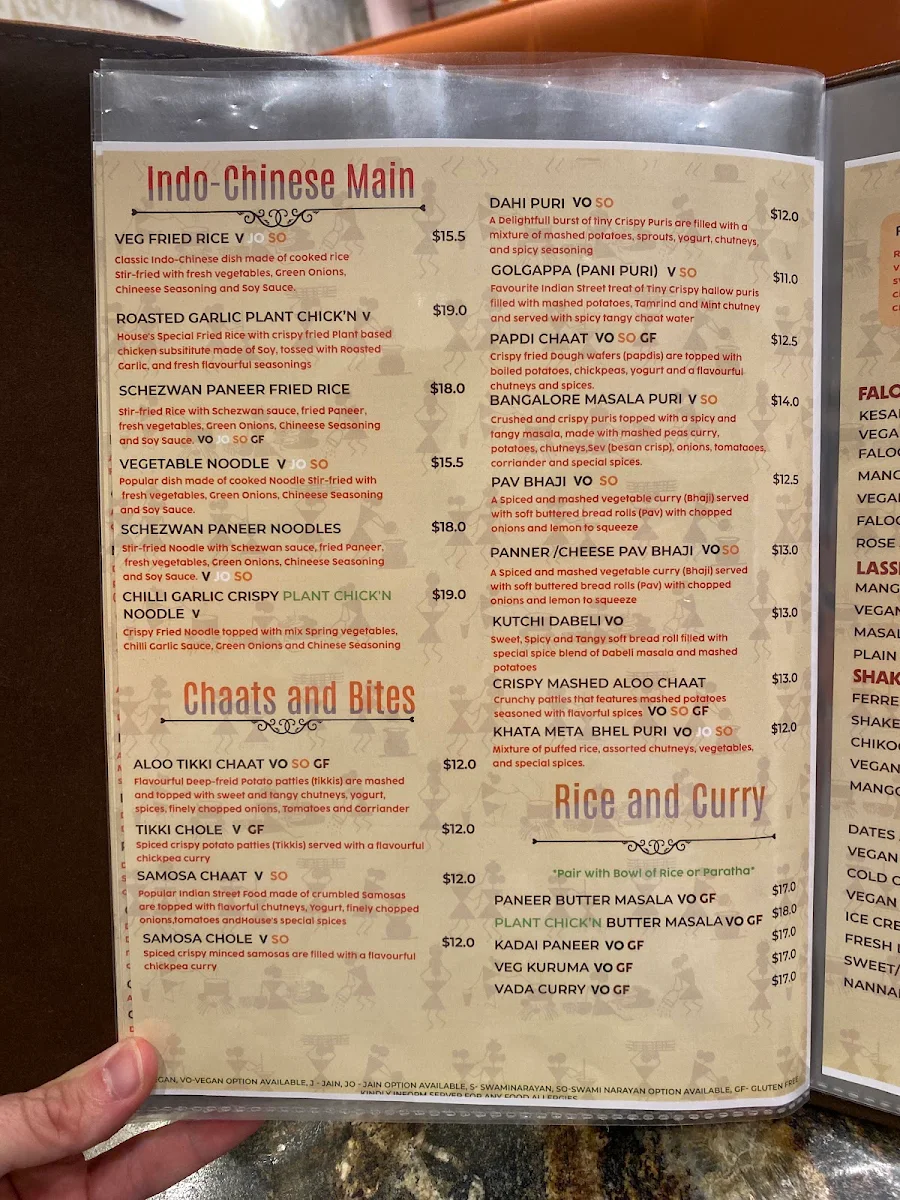 Indo-Chinese Main
VEG FRIED RICE V JO SO $15.5
Classic Indo-Chinese dish made of cooked rice
Stir-fried with fresh vegetables, Green Onions,
Chineese Seasoning and Soy Sauce.
ROASTED GARLIC PLANT CHICK'N V $19.0
House's Special Fried Rice with crispy fried Plant based
chicken subsititute made of Soy, tossed with Roasted
Garlic, and fresh flavourful seasonings
SCHEZWAN PANEER FRIED RICE $18.0
Stir-fried Rice with Schezwan sauce, fried Paneer,
fresh vegetables, Green Onions, Chineese Seasoning
and Soy Sauce. VO JO SO GF
VEGETABLE NOODLE V JO SO $15.5
Popular dish made of cooked Noodle Stir-fried with
fresh vegetables, Green Onions, Chineese Seasoning
and Soy Sauce.
SCHEZWAN PANEER NOODLES $18.0
Stir-fried Noodle with Schezwan sauce, fried Paneer,
fresh vegetables, Green Onions, Chineese Seasoning
and Soy Sauce. V JO SO
CHILLI GARLIC CRISPY PLANT CHICK'N $19.0
NOODLE V
Crispy Fried Noodle topped with mix Spring vegetables,
Chilli Garlic Sauce, Green Onions and Chinese Seasoning
Chaats and Bites
ALOO TIKKI CHAAT VO SO GF $12.0
Flavourful Deep-freid Potato patties (tikkis) are mashed
and topped with sweet and tangy chutneys, yogurt,
spices, finely chopped onions, Tomatoes and Corriander
TIKKI CHOLE V GF $12.0
Spiced crispy potato patties (Tikkis) served with a flavourful
chickpea curry
SAMOSA CHAAT V SO $12.0
Popular Indian Street Food made of crumbled Samosas
are topped with flavorful chutneys, Yogurt, finely chopped
onions,tomatoes andHouse's special spices
SAMOSA CHOLE V SO $12.0
Spiced crispy minced samosas are filled with a flavourful
chickpea curry
DAHI PURI VO SO $12.0
A Delightfull burst of tiny Crispy Puris are filled with a
mixture of mashed potatoes, sprouts, yogurt, chutneys,
and spicy seasoning
GOLGAPPA (PANI PURI) V SO $11.0
Favourite Indian Street treat of Tiny Crispy hallow puris
filled with mashed potatoes, Tamrind and Mint chutney
and served with spicy tangy chaat water
PAPDI CHAAT VO SO GF $12.5
Crispy fried Dough wafers (papdis) are topped with
boiled potatoes, chickpeas, yogurt and a flavourful
chutneys and spices.
BANGALORE MASALA PURI V SO $14.0
Crushed and crispy puris topped with a spicy and
tangy masala, made with mashed peas curry,
potatoes, chutneys,Sev (besan crisp), onions, tomatoes,
corriander and special spices.
PAV BHAJI VO SO $12.5
A Spiced and mashed vegetable curry (Bhaji) served
with soft buttered bread rolls (Pav) with chopped
onions and lemon to squeeze
PANNER /CHEESE PAV BHAJI VO SO $13.0
A Spiced and mashed vegetable curry (Bhaji) served
with soft buttered bread rolls (Pav) with chopped
onions and lemon to squeeze
KUTCHI DABELI VO $13.0
Sweet, Spicy and Tangy soft bread roll filled with
special spice blend of Dabeli masala and mashed
potatoes
CRISPY MASHED ALOO CHAAT $13.0
Crunchy patties that features mashed potatoes
seasoned with flavorful spices VO SO GF
KHATA META BHEL PURI VO JO SO $12.0
Mixture of puffed rice, assorted chutneys, vegetables,
and special spices.
Rice and Curry
*Pair with Bowl of Rice or Paratha*
PANEER BUTTER MASALA VO GF $17.0
PLANT CHICK'N BUTTER MASALA VO GF $18.0
KADAI PANEER VO GF $17.0
VEG KURUMA VO GF $17.0
VADA CURRY VO GF $17.0
VO-VEGAN OPTION AVAILABLE, J - JAIN, JO - JAIN OPTION AVAILABLE, S- SWAMINARAYAN, SO-SWAMI NARAYAN OPTION AVAILABLE, GF- GLUTEN FREE
KINDLY INFORM SERVER FOR ANY FOOD ALLERGIES
VEGA
MASAL
PLAIN
SHAK
FERRE
SHAKE
CHIKO
VEGAN
MANG
DATES
VEGAN
COLD
VEGAN
FRESH
SWEET/